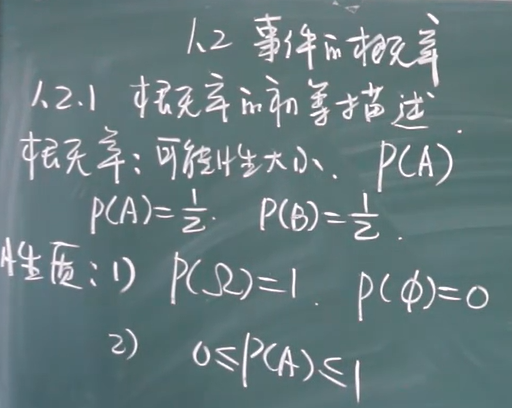 1.2 事件的概率
1.2.1 概率的初等描述.
概率:可能性大小. P(A)
P(A)=1/2. P(B)=1/2.
性质:1) P(Ω)=1. P(ϕ)=0
2) 0≤P(A)≤1